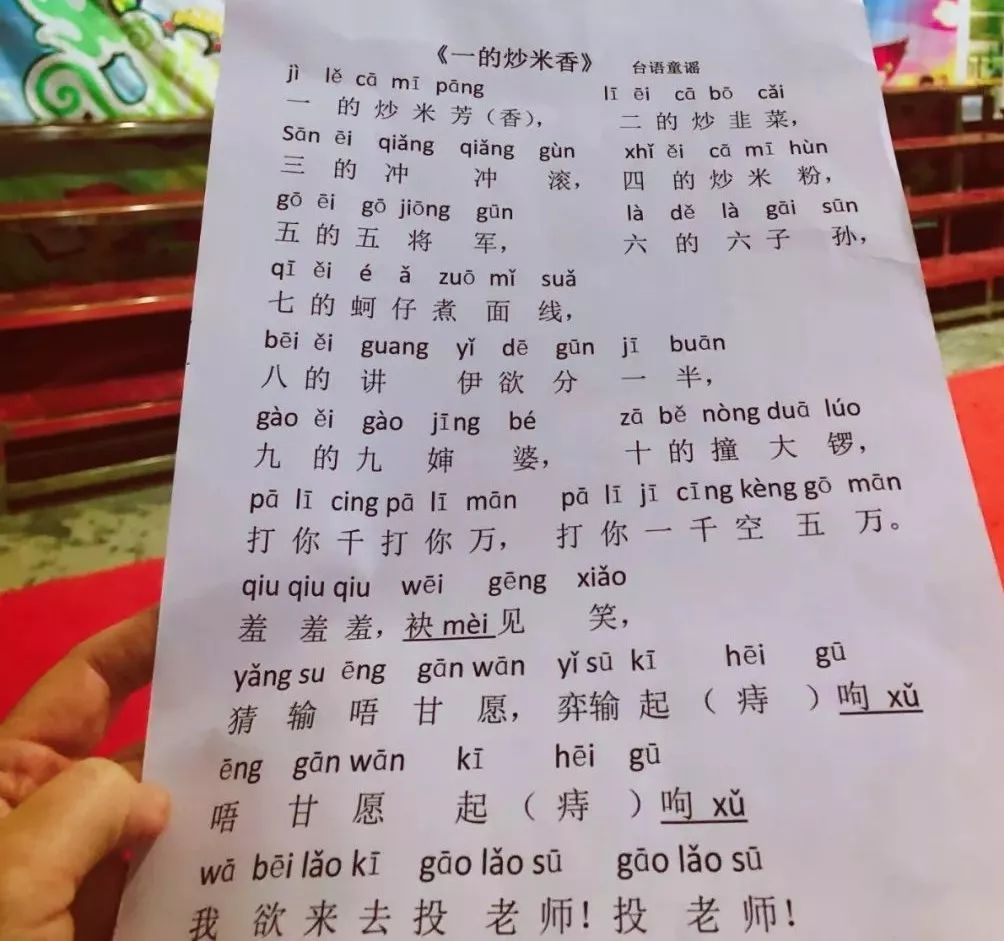 《一的炒米香》 台语童谣
jì lě cā mī pāng lī ēi cā bō cǎi
一的炒米芳（香）, 二的炒韭菜，
Sān ēi qiǎng qiǎng gùn xhǐ ěi cā mī hùn
三的冲冲滚， 四的炒米粉，
gō ēi gō jiōng gūn là dě là gāi sūn
五的五将军， 六的六子孙，
qī ěi é ǎ zuō mǐ suǎ
七的蚵仔煮面线，
bēi ěi guang yǐ dē gūn jī buān
八的讲伊欲分一半，
gào ěi gào jīng bé zā bě nòng duā lúo
九的九婶婆， 十的撞大锣，
pā lī cing pā lī mān pā lī jī cīng kèng gō mān
打你千打你万， 打你一千空五万。
qiu qiu qiu wēi gēng xiǎo
羞羞羞，袂 mèi 见笑，
yǎng su ēng gān wān yǐ sū kī hēi gū
猜输唔甘愿，弈输起（痔）呴 xǔ
ēng gān wān kī hēi gū
唔甘愿起（痔）呴 xǔ
wā bēi lǎo kī gāo lǎo sū gāo lǎo sū
我欲来去投老师！投老师！